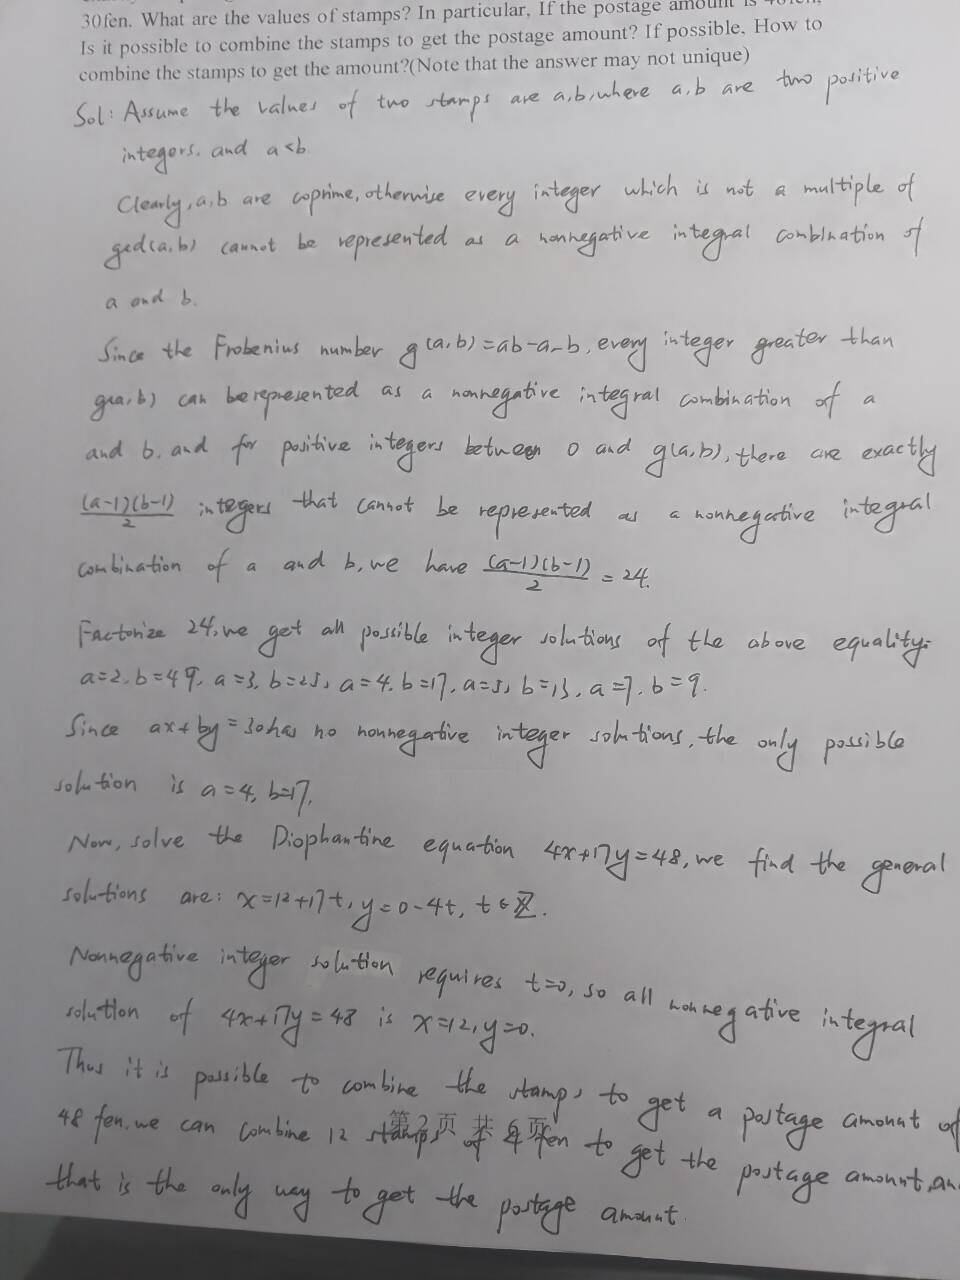 30fen. What are the values of stamps? In particular, If the postage amount is 48fen,
Is it possible to combine the stamps to get the postage amount? If possible, How to
combine the stamps to get the amount?(Note that the answer may not unique)
Sol: Assume the values of two stamps are a,b, where a,b are two positive
integers. and a<b.
Clearly, a,b are coprime, otherwise every integer which is not a multiple of
gcd(a,b) cannot be represented as a nonnegative integral combination of
a and b.
Since the Frobenius number g(a,b)=ab-a-b, every integer greater than
g(a,b) can be represented as a nonnegative integral combination of a
and b, and for positive integers between 0 and g(a,b), there are exactly
(a-1)(b-1)/2 integers that cannot be represented as a nonnegative integral
combination of a and b, we have (a-1)(b-1)/2 = 24.
Factorize 24, we get all possible integer solutions of the above equality:
a=2, b=49, a=3, b=25, a=4, b=17, a=5, b=13, a=7, b=9.
Since ax+by=30 has no nonnegative integer solutions, the only possible
solution is a=4, b=17.
Now, solve the Diophantine equation 4x+17y=48, we find the general
solutions are: x=12+17t, y=0-4t, t∈Z.
Nonnegative integer solution requires t=0, so all nonnegative integral
solution of 4x+17y=48 is x=12, y=0.
Thus it is possible to combine the stamps to get a postage amount of
48 fen, we can combine 12 stamps of 4 fen to get the postage amount, an
第2页 共6页
that is the only way to get the postage amount.